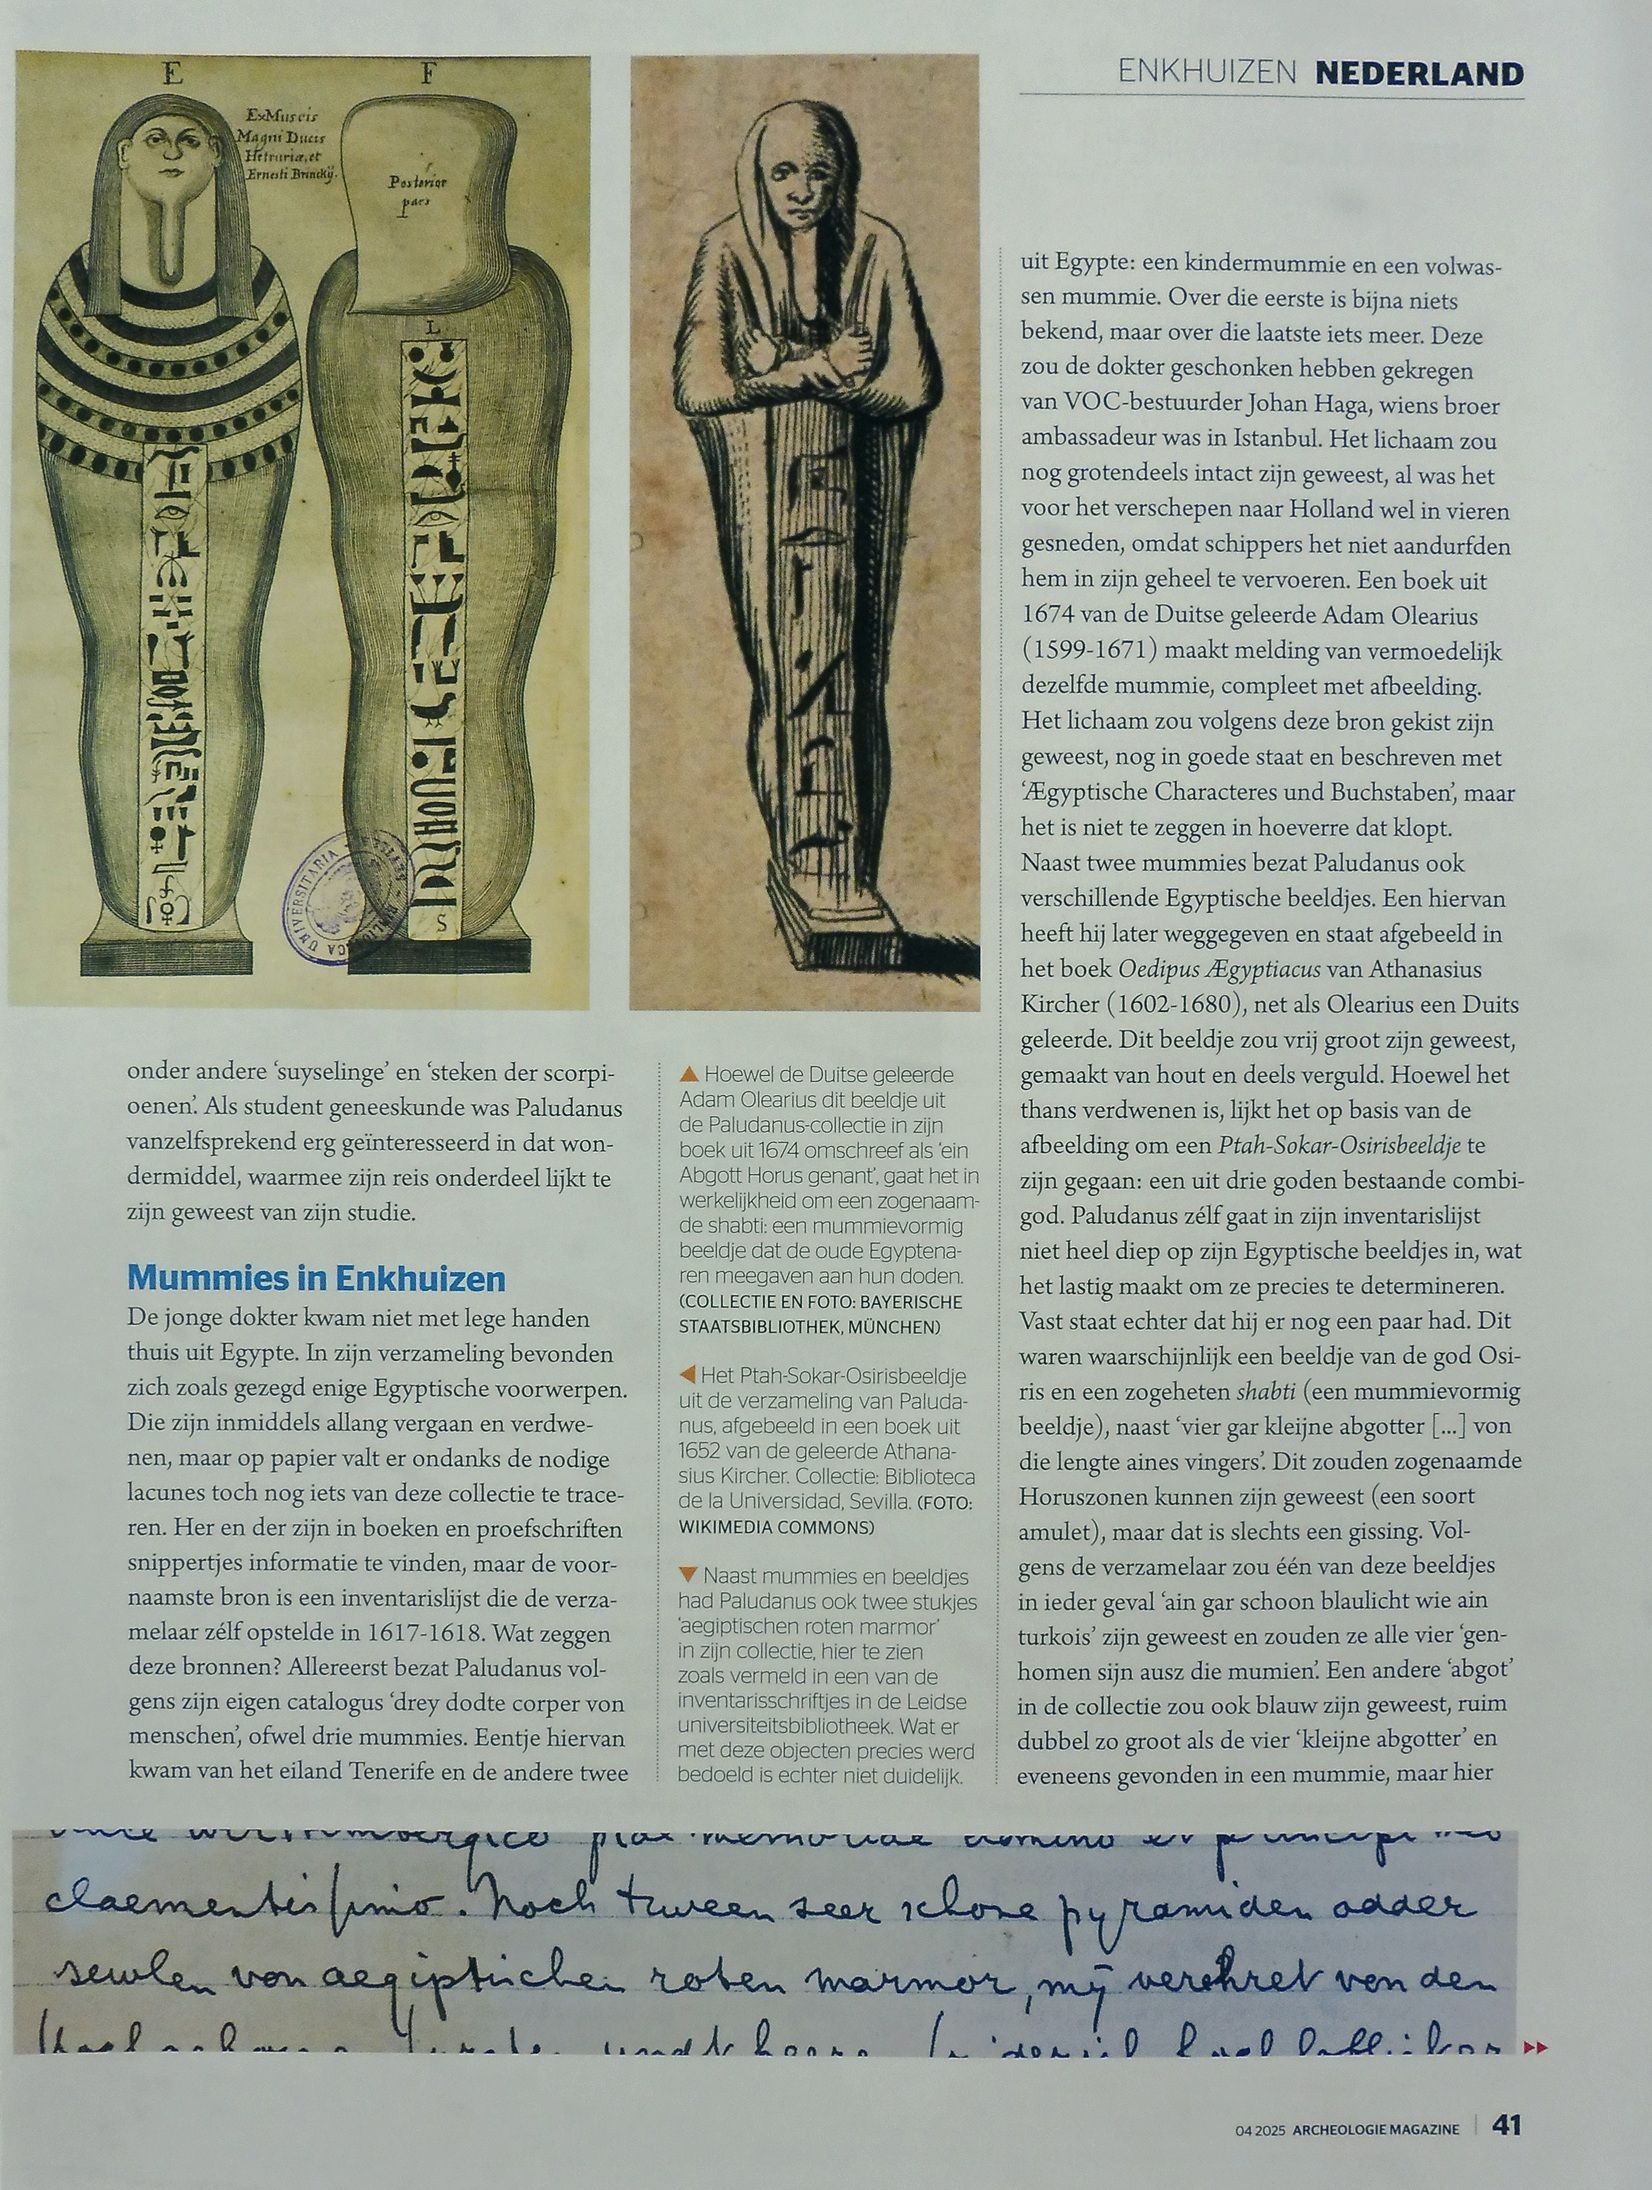 ENKHUIZEN NEDERLAND
E
F
Ex Museis
Magni Ducis
Hetruriæ, et
Ernesti Brinckÿ.
Posterior
pars
L
S
UNIVERSITARIA
onder andere ‘suyselinge’ en ‘steken der scorpi-
oenen’. Als student geneeskunde was Paludanus
vanzelfsprekend erg geïnteresseerd in dat won-
dermiddel, waarmee zijn reis onderdeel lijkt te
zijn geweest van zijn studie.
Mummies in Enkhuizen
De jonge dokter kwam niet met lege handen
thuis uit Egypte. In zijn verzameling bevonden
zich zoals gezegd enige Egyptische voorwerpen.
Die zijn inmiddels allang vergaan en verdwe-
nen, maar op papier valt er ondanks de nodige
lacunes toch nog iets van deze collectie te trace-
ren. Her en der zijn in boeken en proefschriften
snippertjes informatie te vinden, maar de voor-
naamste bron is een inventarislijst die de verza-
melaar zélf opstelde in 1617-1618. Wat zeggen
deze bronnen? Allereerst bezat Paludanus vol-
gens zijn eigen catalogus ‘drey dodte corper von
menschen’, ofwel drie mummies. Eentje hiervan
kwam van het eiland Tenerife en de andere twee
▲ Hoewel de Duitse geleerde
Adam Olearius dit beeldje uit
de Paludanus-collectie in zijn
boek uit 1674 omschreef als ‘ein
Abgott Horus genant’, gaat het in
werkelijkheid om een zogenaam-
de shabti: een mummievormig
beeldje dat de oude Egyptena-
ren meegaven aan hun doden.
(COLLECTIE EN FOTO: BAYERISCHE
STAATSBIBLIOTHEK, MÜNCHEN)
◀ Het Ptah-Sokar-Osirisbeeldje
uit de verzameling van Paluda-
nus, afgebeeld in een boek uit
1652 van de geleerde Athana-
sius Kircher. Collectie: Biblioteca
de la Universidad, Sevilla. (FOTO:
WIKIMEDIA COMMONS)
▼ Naast mummies en beeldjes
had Paludanus ook twee stukjes
‘aegiptischen roten marmor’
in zijn collectie, hier te zien
zoals vermeld in een van de
inventarisschriftjes in de Leidse
universiteitsbibliotheek. Wat er
met deze objecten precies werd
bedoeld is echter niet duidelijk.
uit Egypte: een kindermummie en een volwas-
sen mummie. Over die eerste is bijna niets
bekend, maar over die laatste iets meer. Deze
zou de dokter geschonken hebben gekregen
van VOC-bestuurder Johan Haga, wiens broer
ambassadeur was in Istanbul. Het lichaam zou
nog grotendeels intact zijn geweest, al was het
voor het verschepen naar Holland wel in vieren
gesneden, omdat schippers het niet aandurfden
hem in zijn geheel te vervoeren. Een boek uit
1674 van de Duitse geleerde Adam Olearius
(1599-1671) maakt melding van vermoedelijk
dezelfde mummie, compleet met afbeelding.
Het lichaam zou volgens deze bron gekist zijn
geweest, nog in goede staat en beschreven met
‘Ægyptische Characteres und Buchstaben’, maar
het is niet te zeggen in hoeverre dat klopt.
Naast twee mummies bezat Paludanus ook
verschillende Egyptische beeldjes. Een hiervan
heeft hij later weggegeven en staat afgebeeld in
het boek Oedipus Ægyptiacus van Athanasius
Kircher (1602-1680), net als Olearius een Duits
geleerde. Dit beeldje zou vrij groot zijn geweest,
gemaakt van hout en deels verguld. Hoewel het
thans verdwenen is, lijkt het op basis van de
afbeelding om een Ptah-Sokar-Osirisbeeldje te
zijn gegaan: een uit drie goden bestaande combi-
god. Paludanus zélf gaat in zijn inventarislijst
niet heel diep op zijn Egyptische beeldjes in, wat
het lastig maakt om ze precies te determineren.
Vast staat echter dat hij er nog een paar had. Dit
waren waarschijnlijk een beeldje van de god Osi-
ris en een zogeheten shabti (een mummievormig
beeldje), naast ‘vier gar kleijne abgotter [...] von
die lengte aines vingers’. Dit zouden zogenaamde
Horuszonen kunnen zijn geweest (een soort
amulet), maar dat is slechts een gissing. Vol-
gens de verzamelaar zou één van deze beeldjes
in ieder geval ‘ain gar schoon blaulicht wie ain
turkois’ zijn geweest en zouden ze alle vier ‘gen-
homen sijn ausz die mumien’. Een andere ‘abgot’
in de collectie zou ook blauw zijn geweest, ruim
dubbel zo groot als de vier ‘kleijne abgotter’ en
eveneens gevonden in een mummie, maar hier
claementissimo. Noch tween seer schone pyramiden odder
sewlen von aegiptischen roten marmor, mÿ verehret von den
04 2025 ARCHEOLOGIE MAGAZINE | 41